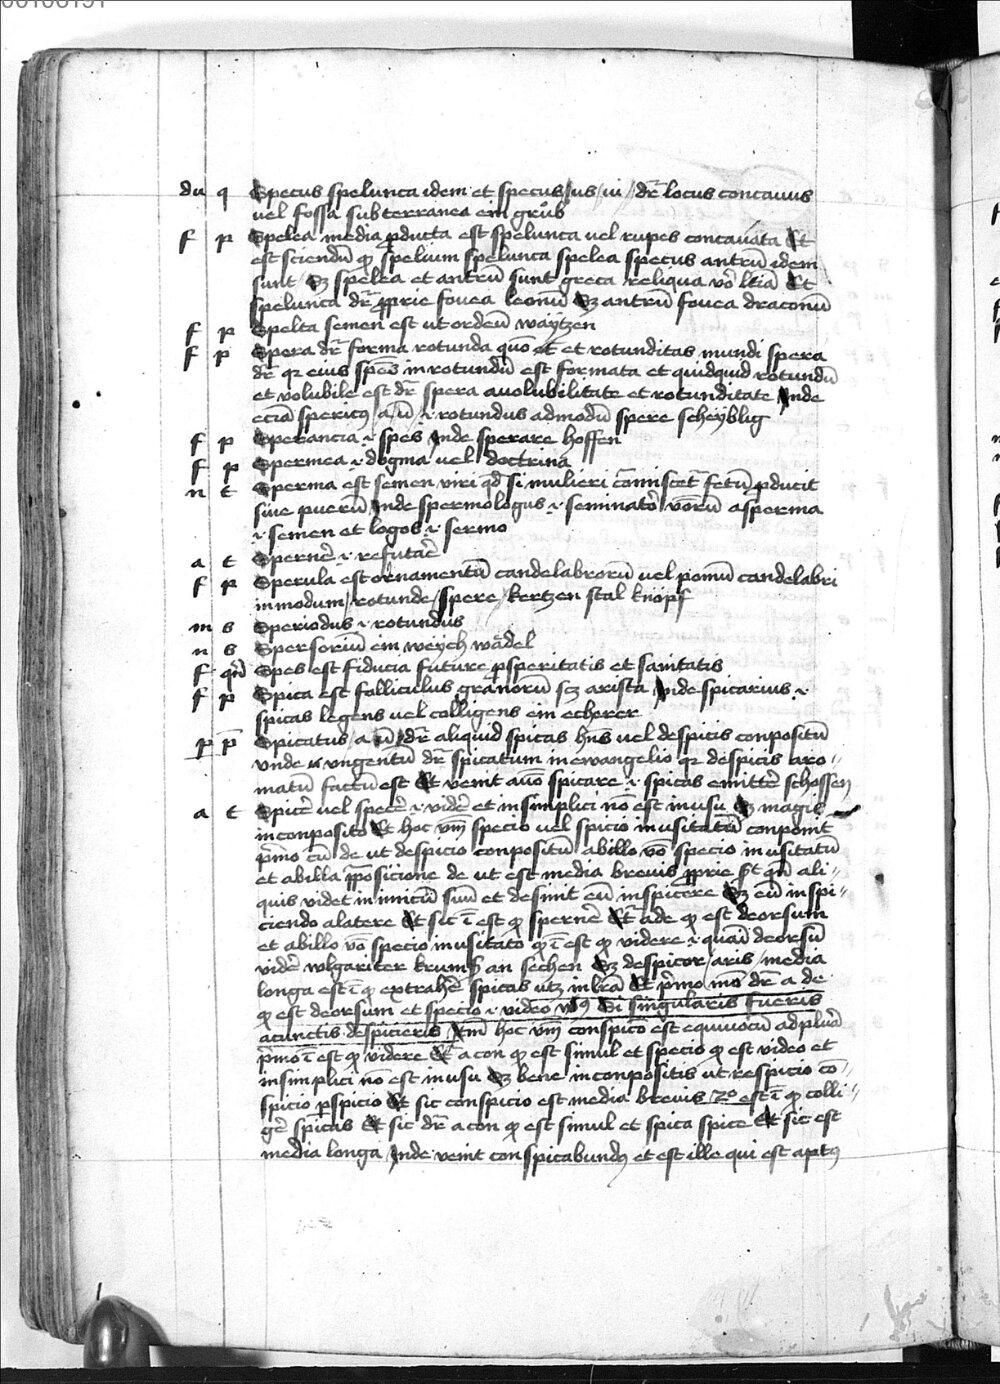 00100191
du q Specus spelunca idem et specus /us /ui / dr̄ locus concauus
uel fossa subterranea ein grůb
f p Spelea media ꝓducta est spelunca uel rupes concauata Et
est sciendū ꝙ spelium spelunca spelea specus antrū idem
sunt / Sꝫ spelea et antrū sunt greca reliqua vo᷒ Et
spelunca dr̄ ꝓprie fouea leonū Sꝫ antrū fouea draconū
f p Spelta semen est ut ordeū waÿtzen
f p Spera dr̄ forma rotunda et rotunditas mundi spera
dr̄ qꝛ eius in rotundū est formata et quidquid rotundū
et volubile est dr̄ spera a uolubilitate et rotunditate Inde
spericꝰ /a /ū / ·i· rotundus admodū spere scheÿblig
f p Sperancia ·i· spes Inde sperare hoffen
f p Spermea ·i· dogma uel doctrina
n t Sperma est semen viri qd̄ si mulieri fetū ꝓducit
siue puerū Inde spermologus ·i· seminator̄ a sperma
·i· semen et logos ·i· sermo
a t Sperner̄ ·i· refutar̄
f p Sperula est ornamentū candelabrorū uel pomū candelabri
in modum / rotunde / spere / kertzen stal knöpf
m s Speriodus ·i· rotundus
n s Spersoriū ein weÿch wådel
f qn̄ Spes est fiducia future ꝓsperitatis et sanitatis
f p Spica est folliculus granorū scꝫ arista Inde spicarius ·i·
spicas legens uel colligens ein echerer
p p̄ Spicatus /a /ū / dr̄ aliquid spicas hn̄s uel de spicis conpositū
vnde vngentū dr̄ spicatum in ewangelio qꝛ de spicis aro//
matū factū est Et venit spicare ·i· spicas emitter̄ schossen
a t Spicer̄ uel specer̄ ·i· vider̄ et in simplici nō est in usu Sꝫ magis
in conposito Et hoc vm̄ specio uel spicio inusitatū conponit᷒
p̄mo cū de ut despicio conpositū ab illo vo᷒ specio inusitatū
et ab illa p̄posicione de ut est media breuis ꝓprie qn̄ ali//
quis videt inimicū suū et desinit eū inspicere Sꝫ eū inspi//
ciendo a latere Et sic ī est ꝙ sperner̄ ꝙ est deorsum
et ab illo vo᷒ specio inusitato ꝙ ī est ꝙ videre ·i· deorsū
vider̄ wlgariter krums an sechen Sꝫ despicor /aris / media
longa est ī ꝙ extraher̄ spicas Et p̄mo mo᷒ dr̄ a de
ꝙ est deorsum et specio ·i· video Si singularis fueris
a cunctis despicieris hoc vm̄ conspico est equiuocū ad plura
p̄mo ī est ꝙ videre Et a con ꝙ est simul et specio ꝙ est video et
in simplici nō est in usu Sꝫ bene in conpositis ut respicio cō//
spicio ꝓspicio Et sic conspicio est media breuis 2o est ī ꝙ colli//
ger̄ spicas Et sic dr̄ a con ꝙ est simul et spica spice Et sic est
media longa Inde venit conspicabundꝰ et est ille qui est aptꝰ